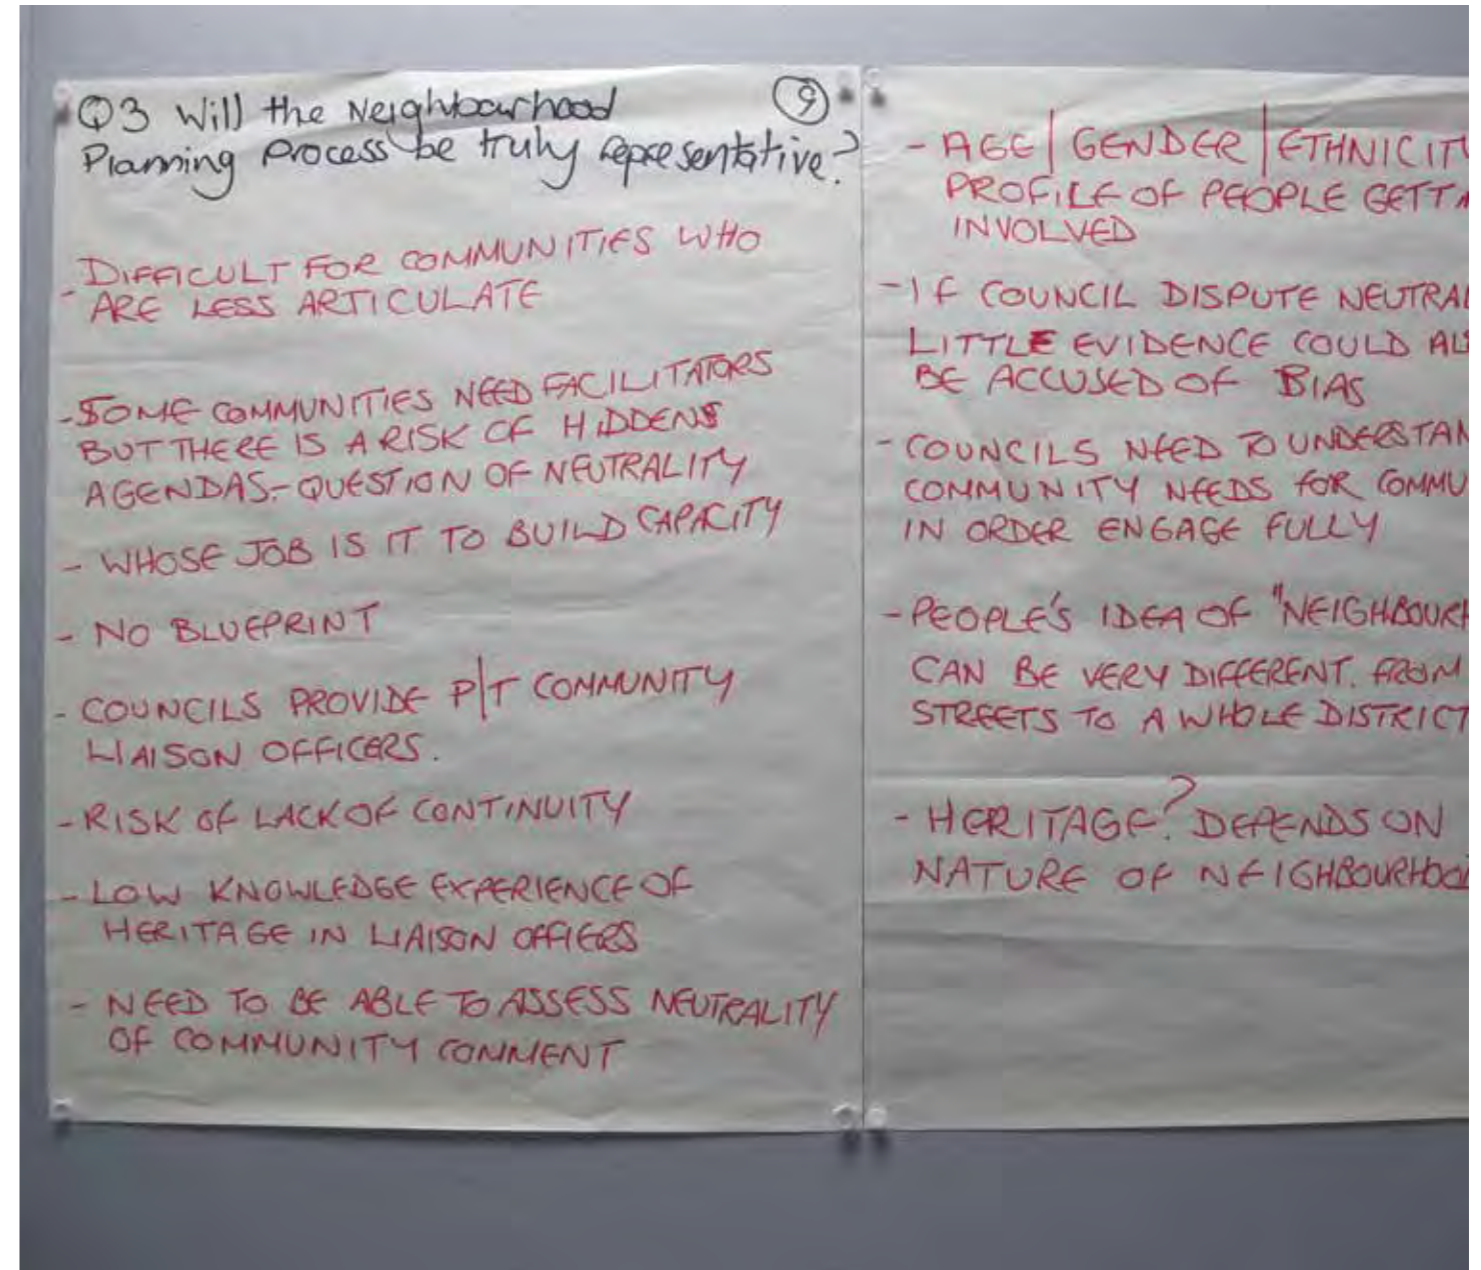 Q3 Will the Neighbourhood
Planning Process be truly representative?
9
- DIFFICULT FOR COMMUNITIES WHO
ARE LESS ARTICULATE
- SOME COMMUNITIES NEED FACILITATORS
BUT THERE IS A RISK OF HIDDENS
AGENDAS - QUESTION OF NEUTRALITY
- WHOSE JOB IS IT TO BUILD CAPACITY
- NO BLUEPRINT
- COUNCILS PROVIDE P|T COMMUNITY
LIAISON OFFICERS.
- RISK OF LACK OF CONTINUITY
- LOW KNOWLEDGE EXPERIENCE OF
HERITAGE IN LIAISON OFFICERS
- NEED TO BE ABLE TO ASSESS NEUTRALITY
OF COMMUNITY COMMENT
- AGE | GENDER | ETHNICITY
PROFILE OF PEOPLE GETT
INVOLVED
- IF COUNCIL DISPUTE NEUTRAL
LITTLE EVIDENCE COULD AL
BE ACCUSED OF BIAS
- COUNCILS NEED TO UNDERSTAN
COMMUNITY NEEDS FOR COMMU
IN ORDER ENGAGE FULLY
- PEOPLE'S IDEA OF "NEIGHBOURH
CAN BE VERY DIFFERENT. FROM
STREETS TO A WHOLE DISTRICT
- HERITAGE? DEPENDS ON
NATURE OF NEIGHBOURHOO